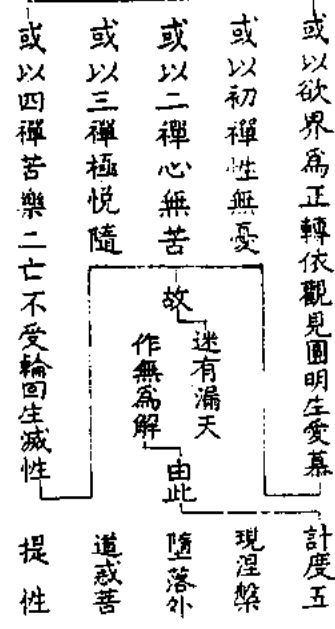 或以欲界爲正轉依觀見圓明生愛慕
或以初禪性無憂
或以二禪心無苦
或以三禪極悅隨
或以四禪苦樂二亡不受輪回生滅性
故
迷有漏天
作無爲解
由此
計度五
現涅槃
墮落外
道惑菩
提性